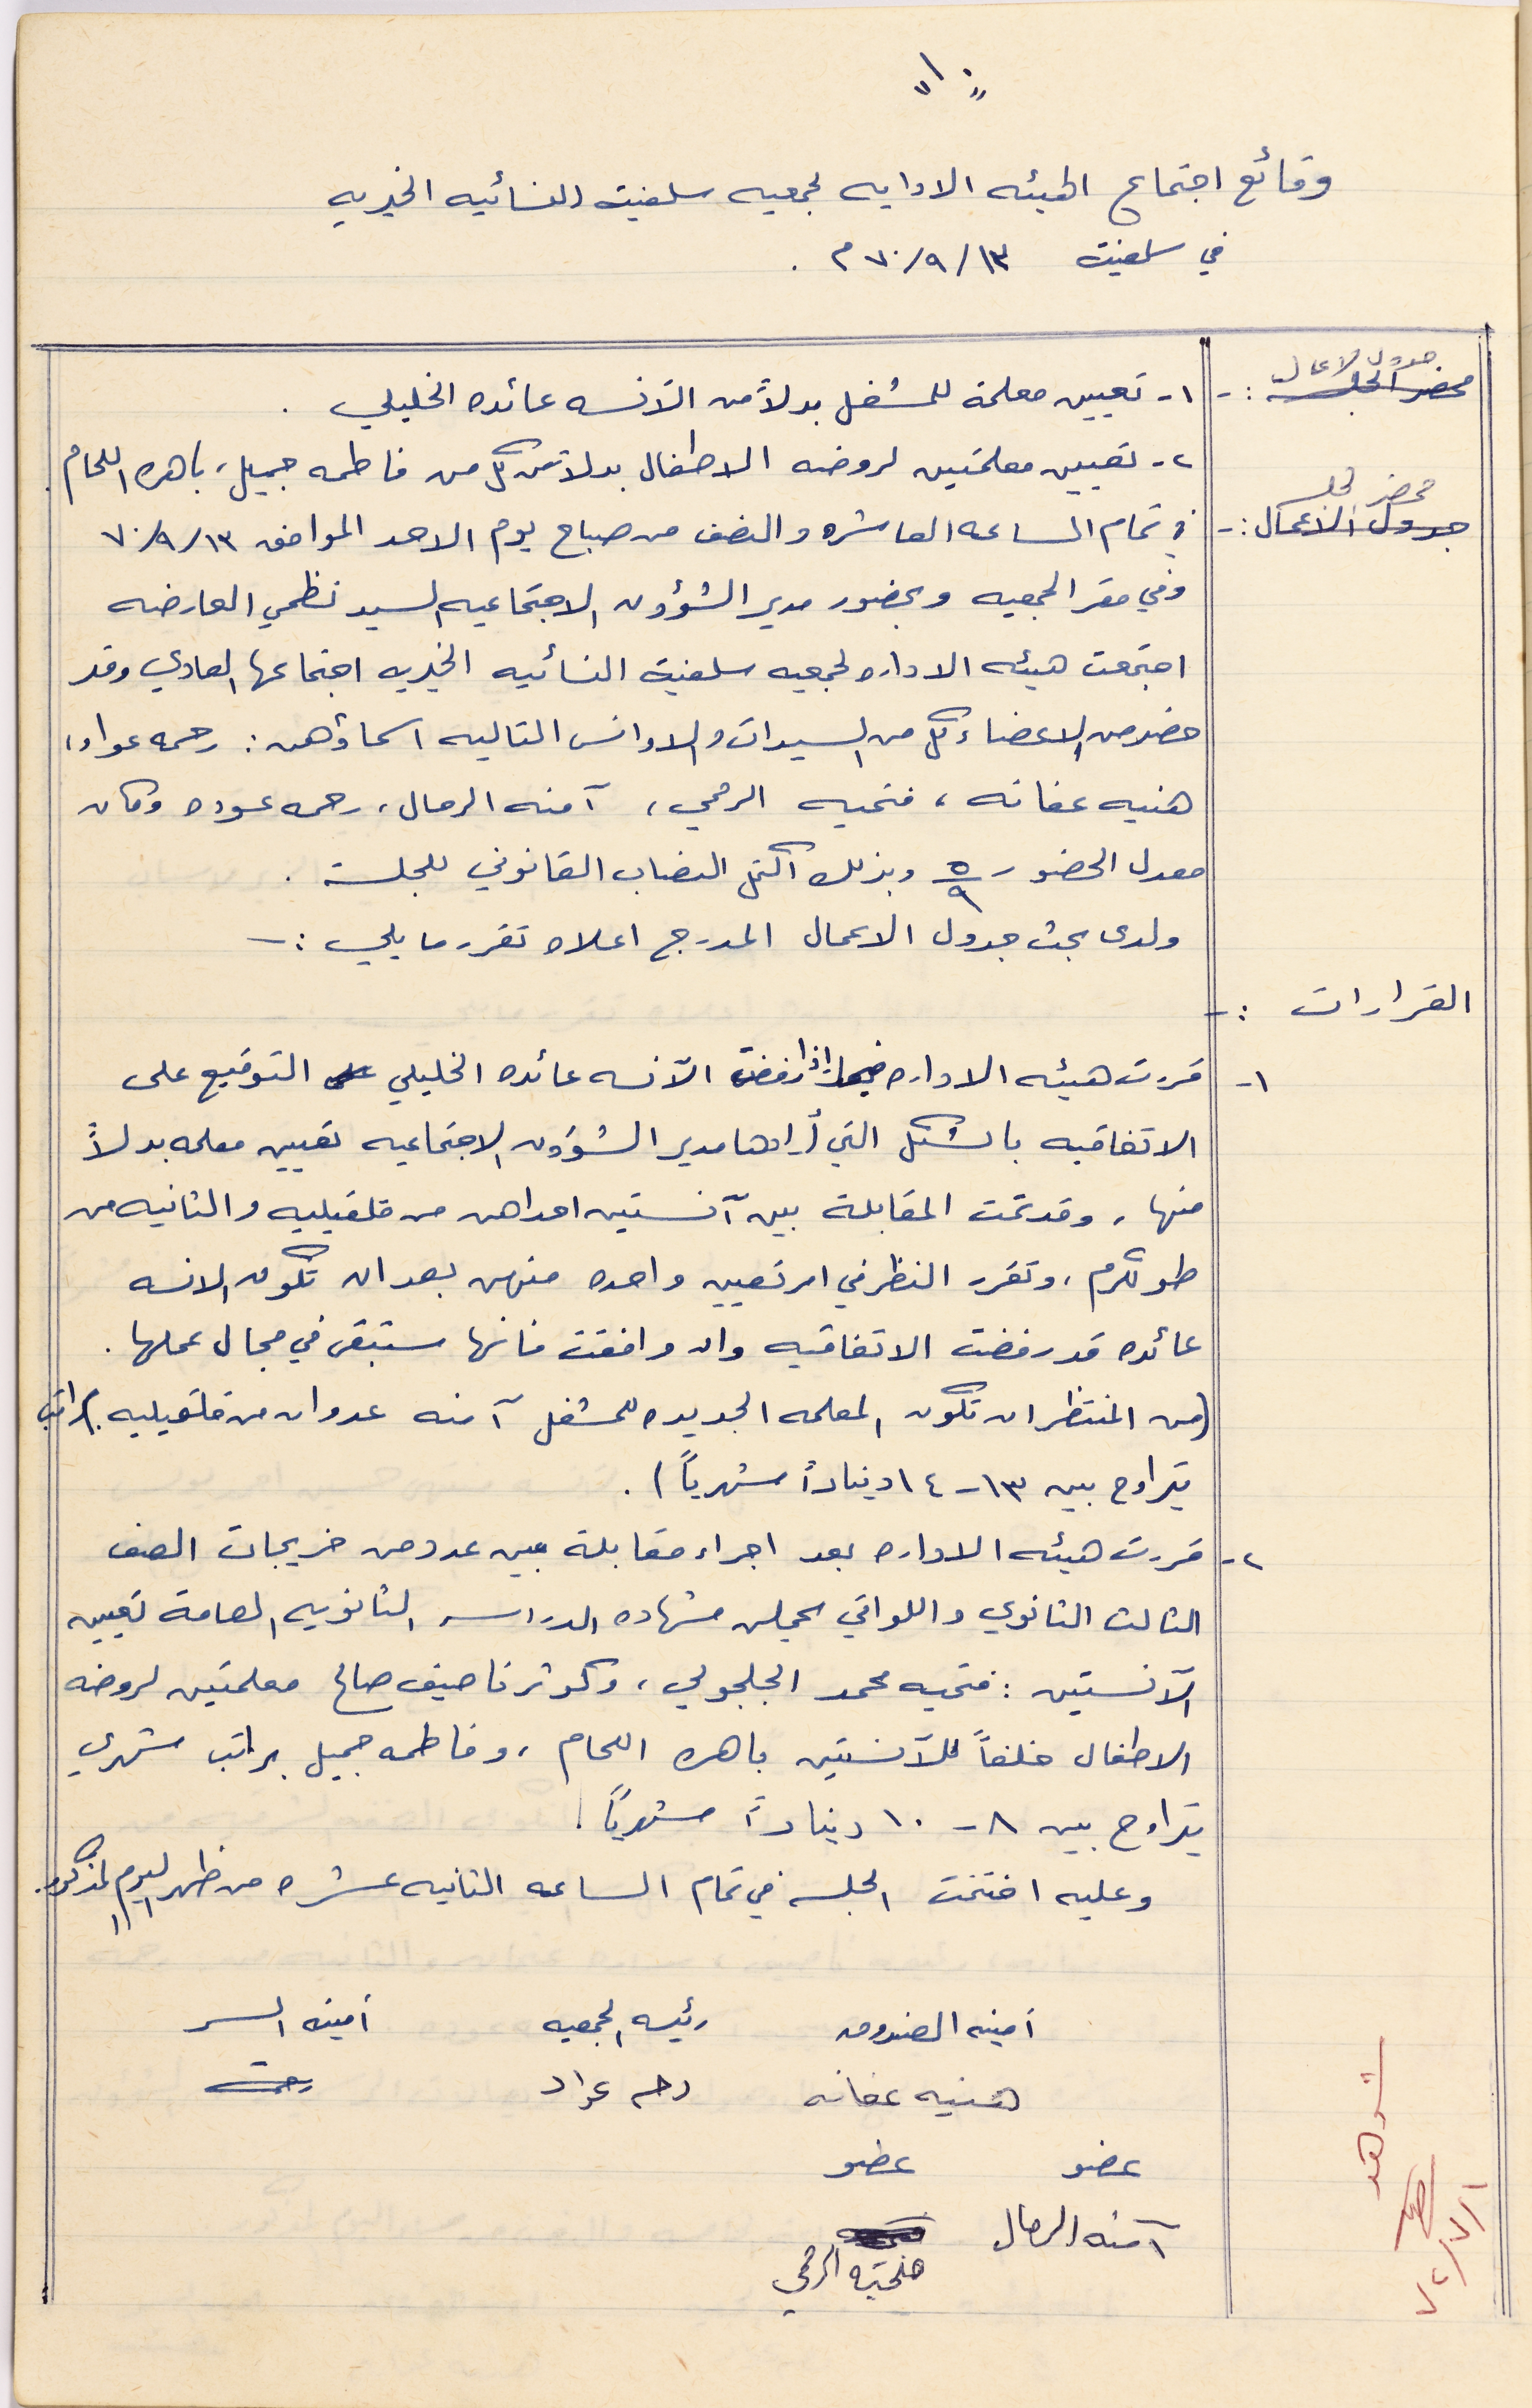 وقائع اجتماع الهيئه الاداريه لجمعيه سلفيت النسائيه الخيريه
في سلفيت ١٣/٩/٧٠ م .
جدول الاعمال
محضر الجلسه :-
١- تعيين معلمة للمشغل بدلاً من الآنسه عائده الخليلي .
٢- تعيين معلمتين لروضه الاطفال بدلا من كل من فاطمه جميل، باهره اللحام .
محضر الجلسه
جدول الاعمال :-
في تمام الساعه العاشره والنصف من صباح يوم الاحد الموافق ١٣/٩/٧٠
وفي مقر الجمعيه وبحضور مدير الشؤون الاجتماعيه السيد نظمي العارضه
اجتمعت هيئه الاداره لجمعيه سلفيت النسائيه الخيريه اجتماعها العادي وقد
حضر من الاعضاء كل من السيدات والاوانس التاليه اسماؤهن : رحمه عواد،
هنيه عفانه ، فتحيه الرمحي ، آمنه الرمال ، رحمه عوده وكان
معدل الحضور ٥/٩ وبذلك اكتمل النصاب القانوني للجلسة .
ولدى بحث جدول الاعمال المدرج اعلاه تقرر ما يلي :-
القرارات :-
١- قررت هيئه الاداره اذا رفضت الآنسه عائده الخليلي التوقيع على
الاتفاقيه بالشكل التي أرادها مدير الشؤون الاجتماعيه تعيين معلمه بدلاً
منها ، وقد تمت المقابلة بين آنستين احداهن من قلقيليه والثانيه من
طولكرم ، وتقرر النظر في امر تعيين واحده منهن بعد ان تكون الانسه
عائده قد رفضت الاتفاقيه وان وافقت فانها ستبقى في مجال عملها .
(من المنتظر ان تكون المعلمه الجديده للمشغل آمنه عدوان من قلقيليه براتب
يتراوح بين ١٣-١٤ ديناراً شهرياً) .
٢- قررت هيئه الاداره بعد اجراء مقابلة بين عدد من خريجات الصف
الثالث الثانوي واللواتي يحملن شهاده الدراسه الثانويه العامة تعيين
الآنستين : فتحيه محمد الجلجولي ، وكوثر ناصيف صالح معلمتين لروضه
الاطفال خلفاً للآنستين باهره اللحام ، وفاطمه جميل براتب شهري
يتراوح بين ٨-١٠ ديناراً شهرياً .
وعليه اختتمت الجلسه في تمام الساعه الثانيه عشره من ظهر اليوم المذكور.
أمينه الصندوق رئيسه الجمعيه أمينه السر
هنيه عفانه رحمه عواد رحمه
عضو عضو
آمنه الرمال فتحيه الرمحي
شوهد
١/٧/٧٢